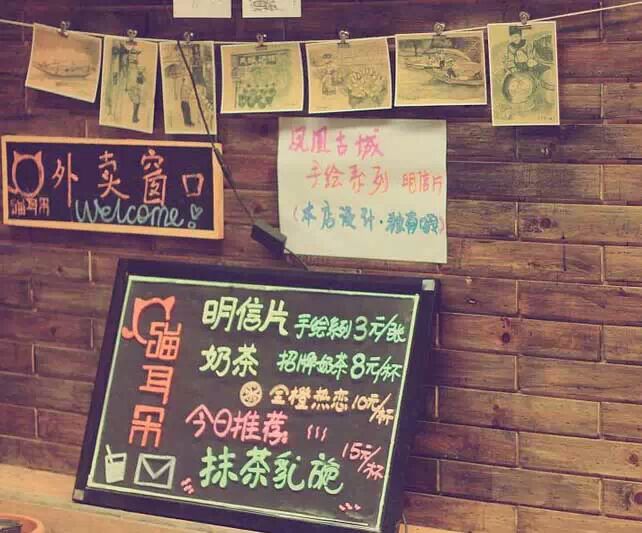 外卖窗口
welcome!
猫耳朵
凤凰古城
手绘系列 明信片
(本店设计·独有哦)
猫耳朵
明信片 手绘系列 3元/张
奶茶 招牌奶茶 8元/杯
金橙热恋 10元/杯
今日推荐
抹茶乳施 15元/杯